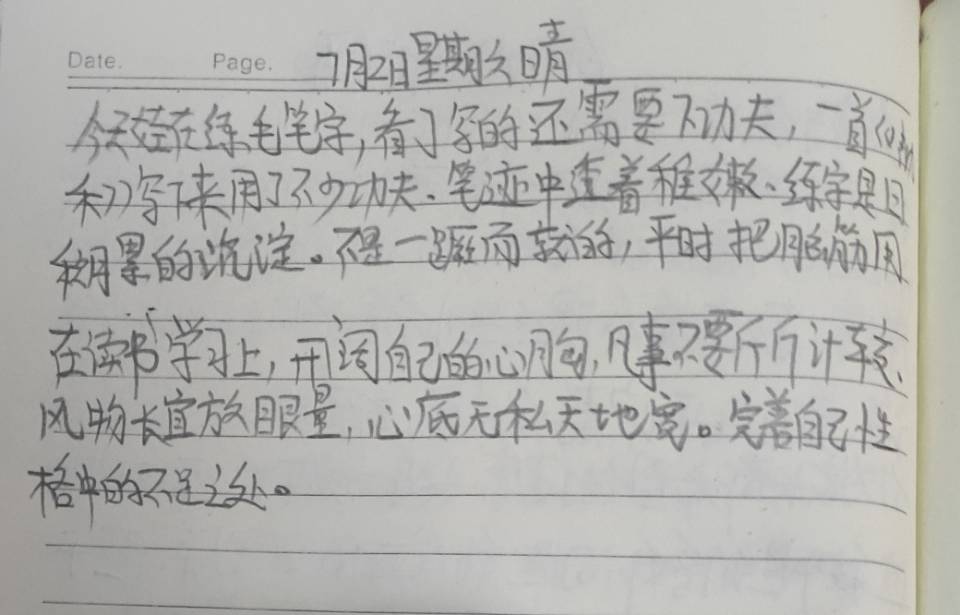 Date. Page. 7月2日星期六晴
今天娃在练毛笔字,看了写的还需要下功夫,一首
和)写下来用了不少功夫、笔迹中透着稚嫩、练字是日
积月累的沉淀。不是一蹴而就的,平时把脑筋用
在读书学习上,开阔自己的心胸,凡事不要斤斤计较、
风物长宜放眼量,心底无私天地宽。完善自己性
格中的不足之处。